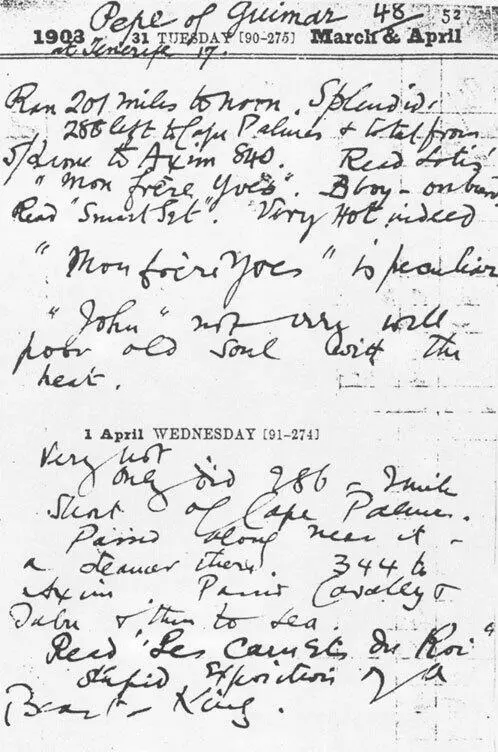 Pepe of Guimar 48 52
1903 31 TUESDAY [90-275] March & April
at Tenerife 17.
Ran 201 miles to noon. Splendid.
286 left to Cape Palmas & total from
S/Leone to Axim 840. Read Loti's
"Mon frère Yves". B boy - on board
Read "Smart Set". Very Hot indeed
"Mon frère Yves" is peculiar
"John" not very well
poor old soul with the
heat.
1 April WEDNESDAY [91-274]
Very hot
only did 286 - 2 mile
short of Cape Palmas.
Passed along near it -
a steamer there. 344 to
Axim. Passed Cavally &
Tabu & then to sea.
Read "Les Carnets du Roi"
stupid Exposition of a
Beast - King.